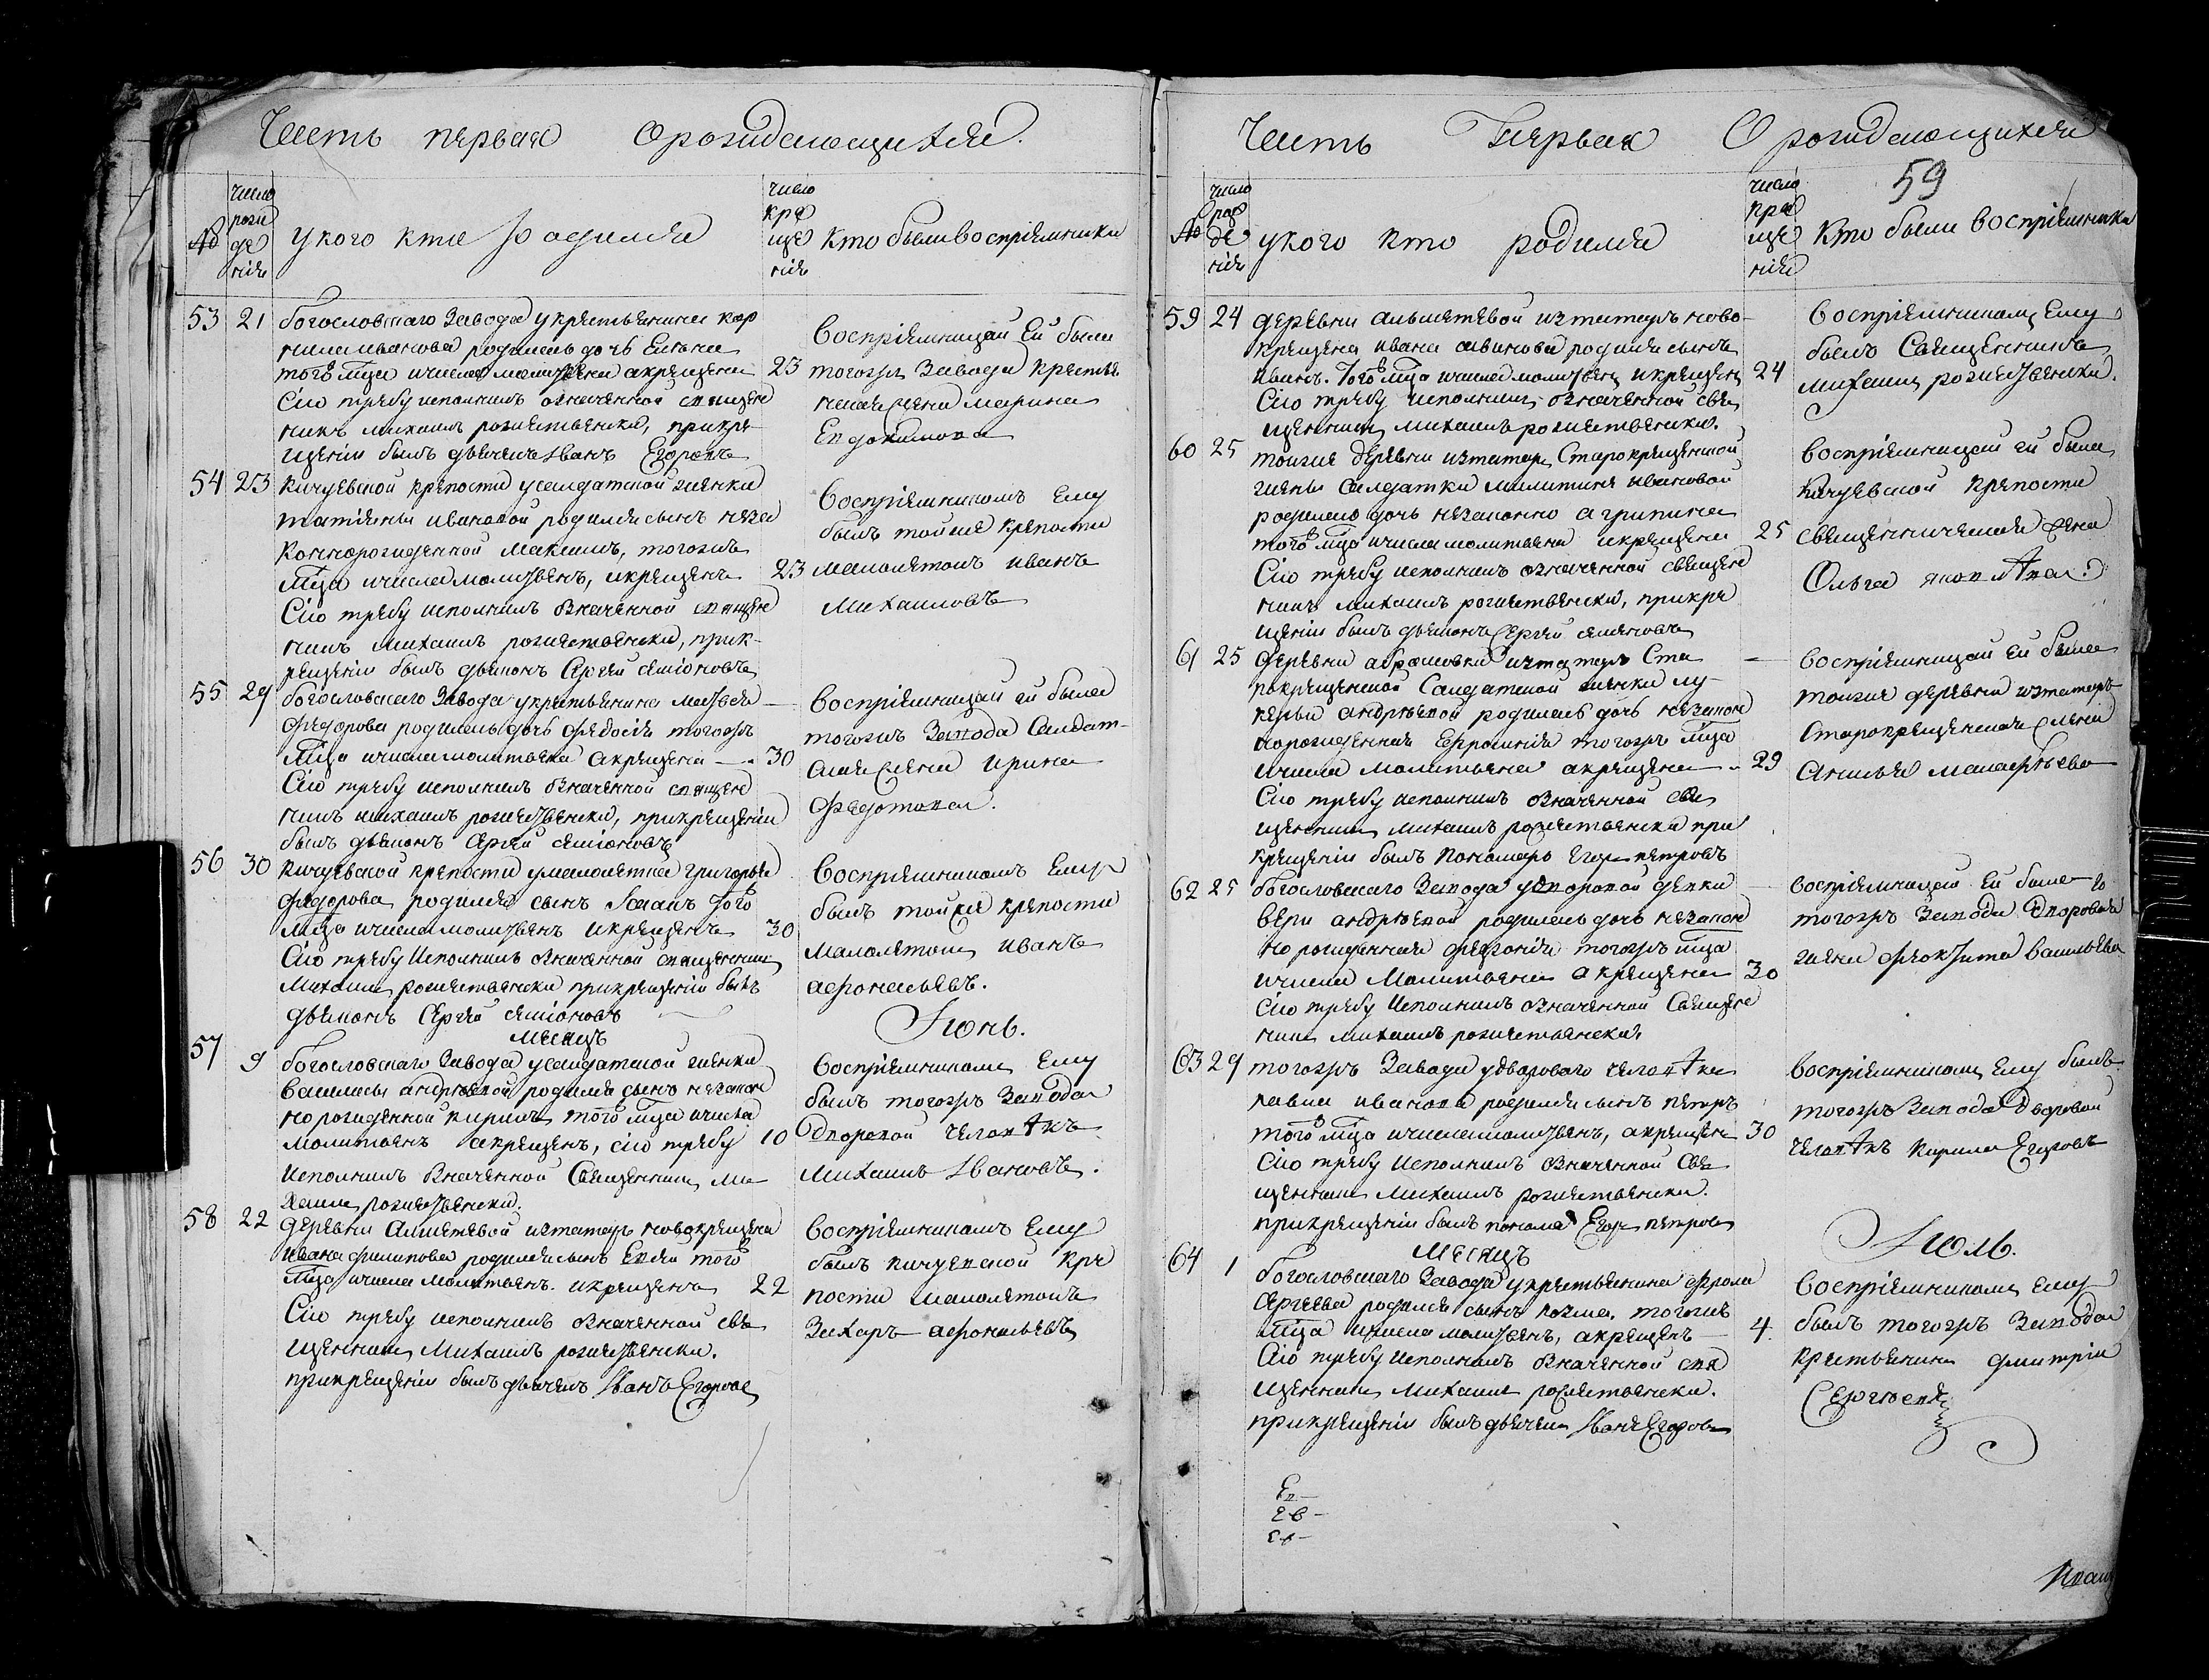 Часть первая О рождающихся.
№
число рожде нія
у кого кто родился
число креще нія
Кто были восприемники
53 21 Богословскаго Завода у крестьянина Кор
нила Иванова родилась дочь Елена
того мца и числа молитвена а крещена 23
Сию требу исполнилъ означенной священ
никъ Михаилъ рожественски, прикре
щении былъ дьячекъ Иванъ Егоровъ
восприемницей Ей была
тогожъ Завода крестьян
ская жена Марина
Евдокимова
54 23 Кичуевской крепости у салдатской женки
Татияны Ивановой родился сынъ неза
коннорожденной Максимъ, тогожъ
мца и числа молитвенъ, и крещенъ 23
Сию требу исполнилъ означенной священ
никъ Михаилъ рожественски, прик-
рещении былъ дьяконъ Сергей Симионовъ
восприемникомъ Ему
былъ той же крепости
малолетокъ Иванъ
Михаиловъ
55 29 Богословскаго Завода у крестьянина Матвея
Федорова родилась дочь Федосия тогожъ
мца и числа молитвена а крещена 30
Сию требу исполнилъ означенной священ
никъ Михаилъ рожественски, прикрещении
былъ дьяконъ Сергей Симионовъ
восприемницей ей была
тогожъ Завода Салдат-
ская жена Ирина
Федотова.
56 30 Кичуевской крепости у малолетка Григорья
Федорова родился сынъ Иванъ того
мца и числа молитвенъ и крещенъ 30
Сию требу исполнилъ означенной священникъ
Михаилъ рожественски прикрещении былъ
дьяконъ Сергей Симионовъ
восприемникомъ Ему
былъ той же крепости
малолетокъ Иванъ
Афонасьевъ.
месяцъ Июнь.
57 9 Богословскаго Завода у салдатской женки
Василисы Андреевой родился сынъ незакон
но рожденной Кирилъ того мца и числа
молитвенъ а крещенъ, сию требу 10
исполнилъ означенной Священникъ Ми
хаилъ рожественски.
восприемникомъ Ему
былъ тогожъ Завода
дворовой человѣкъ
Михаилъ Ивановъ.
58 22 деревни Алметевой изтатаръ новокрещена
Ивана Филипова родился сынъ Евсей того
мца и числа молитвенъ и крещенъ 22
Сию требу исполнилъ означенной свя
щенникъ Михаилъ рожественски.
прикрещении былъ дьячекъ Иванъ Егоровъ
восприемникомъ Ему
былъ кичуевской кре
пости малолетокъ
Захаръ Афонасьевъ
Часть Первая О рождающихся
59
№
число рожде нія
у кого кто родился
число креще нія
Кто были восприемники
59 24 деревни Альметевой изтатаръ ново-
крещена Ивана Иванова родился сынъ
Иванъ. Того мца и числа молитвенъ и крещенъ 24
Сию требу исполнилъ означенной свя
щенникъ Михаилъ рожественски.
восприемникомъ Ему
былъ Священникъ
Михаилъ рожественски.
60 25 тоижъ деревни изтатаръ Старокрещенской
жены Салдатки Милитины Ивановой
родилась дочь незаконно Агрипина
того мца и числа молитвена и крещена 25
Сию требу исполнилъ означенной священ
никъ Михаилъ рожественски, прикре
щении былъ дьяконъ Сергей Семионовъ
восприемницей ей была
Кичуевской крепости
священническая жена
Ольга Яковлева.
61 25 деревни Абрашовки изтатаръ Ста
рокрещенской Салдатской женки Лу
керьи Андреевой родилась дочь незакон
норожденная Ефросиния тогожъ мца
и числа молитвена а крещена 29
Сию требу исполнилъ означенной свя
щенникъ Михаилъ рожественски при
крещении былъ пономарь Егоръ Петровъ
восприемницей Ей была
тоижъ деревни изтатаръ
Старокрещенская жена
62 25 Богословскаго Завода у дворовой девки
Веры Андреевой родилась дочь незакон
но рожденная тогожъ мца
и числа молитвена а крещена 30
Сию требу исполнилъ означенной Священ
никъ Михаилъ рожественски.
восприемницей Ей была
тогожъ Завода дворовая
жена Васильева
63 29 тогожъ Завода у дворового человѣка
Савы Иванова родился сынъ Петръ
того мца и числа молитвенъ, а крещенъ 30
Сию требу исполнилъ означенной Свя
щенникъ Михаилъ рожественски.
прикрещении былъ пономарь Егоръ Петровъ
восприемникомъ Ему былъ
тогожъ Завода дворовой
человѣкъ Кирила Егоровъ
месяцъ Июль.
64 1 Богословскаго Завода у крестьянина Фрола
Сергеева родился сынъ Козма. тогожъ
мца и числа молитвенъ, а крещенъ 4.
Сию требу исполнилъ означенной свя
щенникъ Михаилъ рожественски.
прикрещении былъ дьячекъ Иванъ Егоровъ
восприемникомъ Ему
былъ тогожъ Завода
крестьянинъ Дмитрий
Сергеевъ